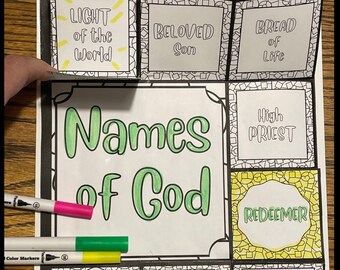 LIGHT
of the
World
BELOVED
Son
BREAD
of
Life
Names
of God
High
PRIEST
REDEEMER
Color Markers